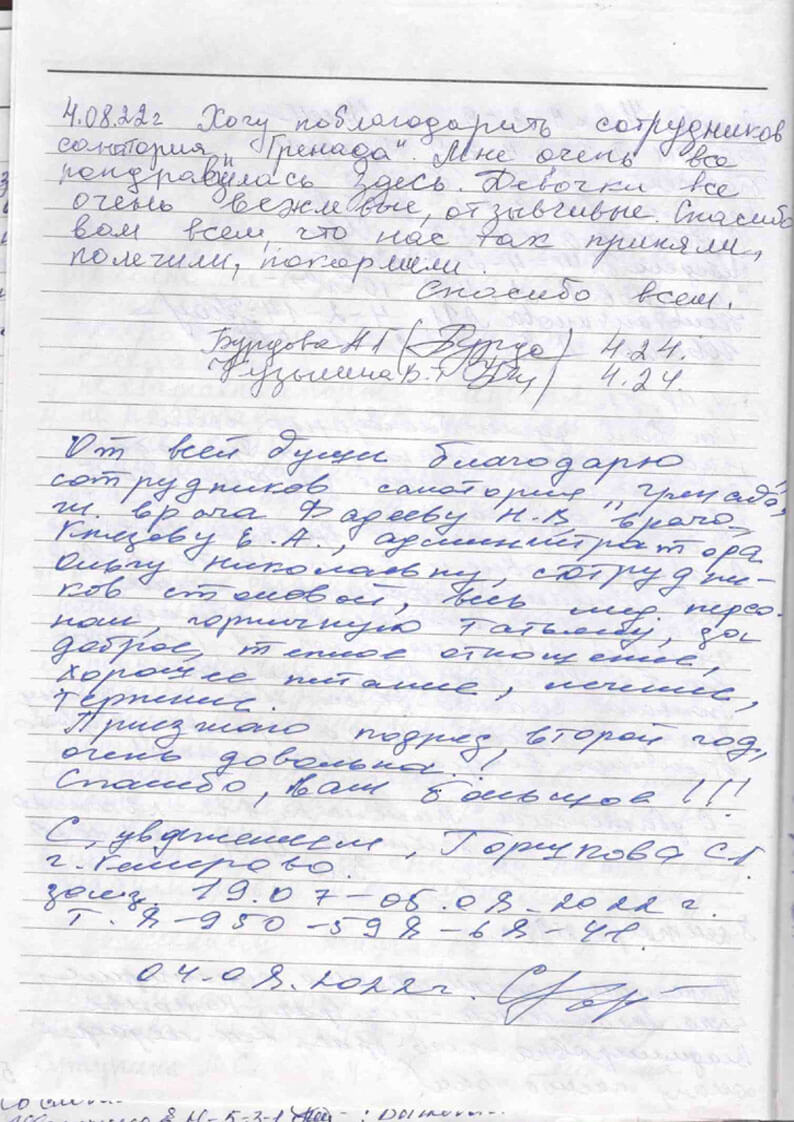 4.08.22г Хочу поблагодарить сотрудников
санатория "Гренада". Мне очень все
пондравилась здесь. Девочки все
очень вежливые, отзывчивые. Спасибо
вам всем, что нас так приняли,
полечили, покормили.
Спасибо всем.
Бурдова Н Г (Бурдо) 4.24.
Кузьмина В. 4.24
От всей души благодарю
сотрудников санатория "Гренада",
гл. врача Фадееву Н.В, врача
Е.А., администратора
Ольгу Николаевну, сотрудни-
ков столовой, весь мед. персо-
нал, горничную Татьяну, за
доброе, теплое отношение,
хорошее питание, лечение,
терпение.
Приезжаю подряд второй год,
очень довольна.
Спасибо, Вам большое!!!
С уважением, С.Г.
г. Кемерово.
заезд. 19.07-05.08.2022 г.
т. 8-950-598-68-41.
04.08.2022 г.